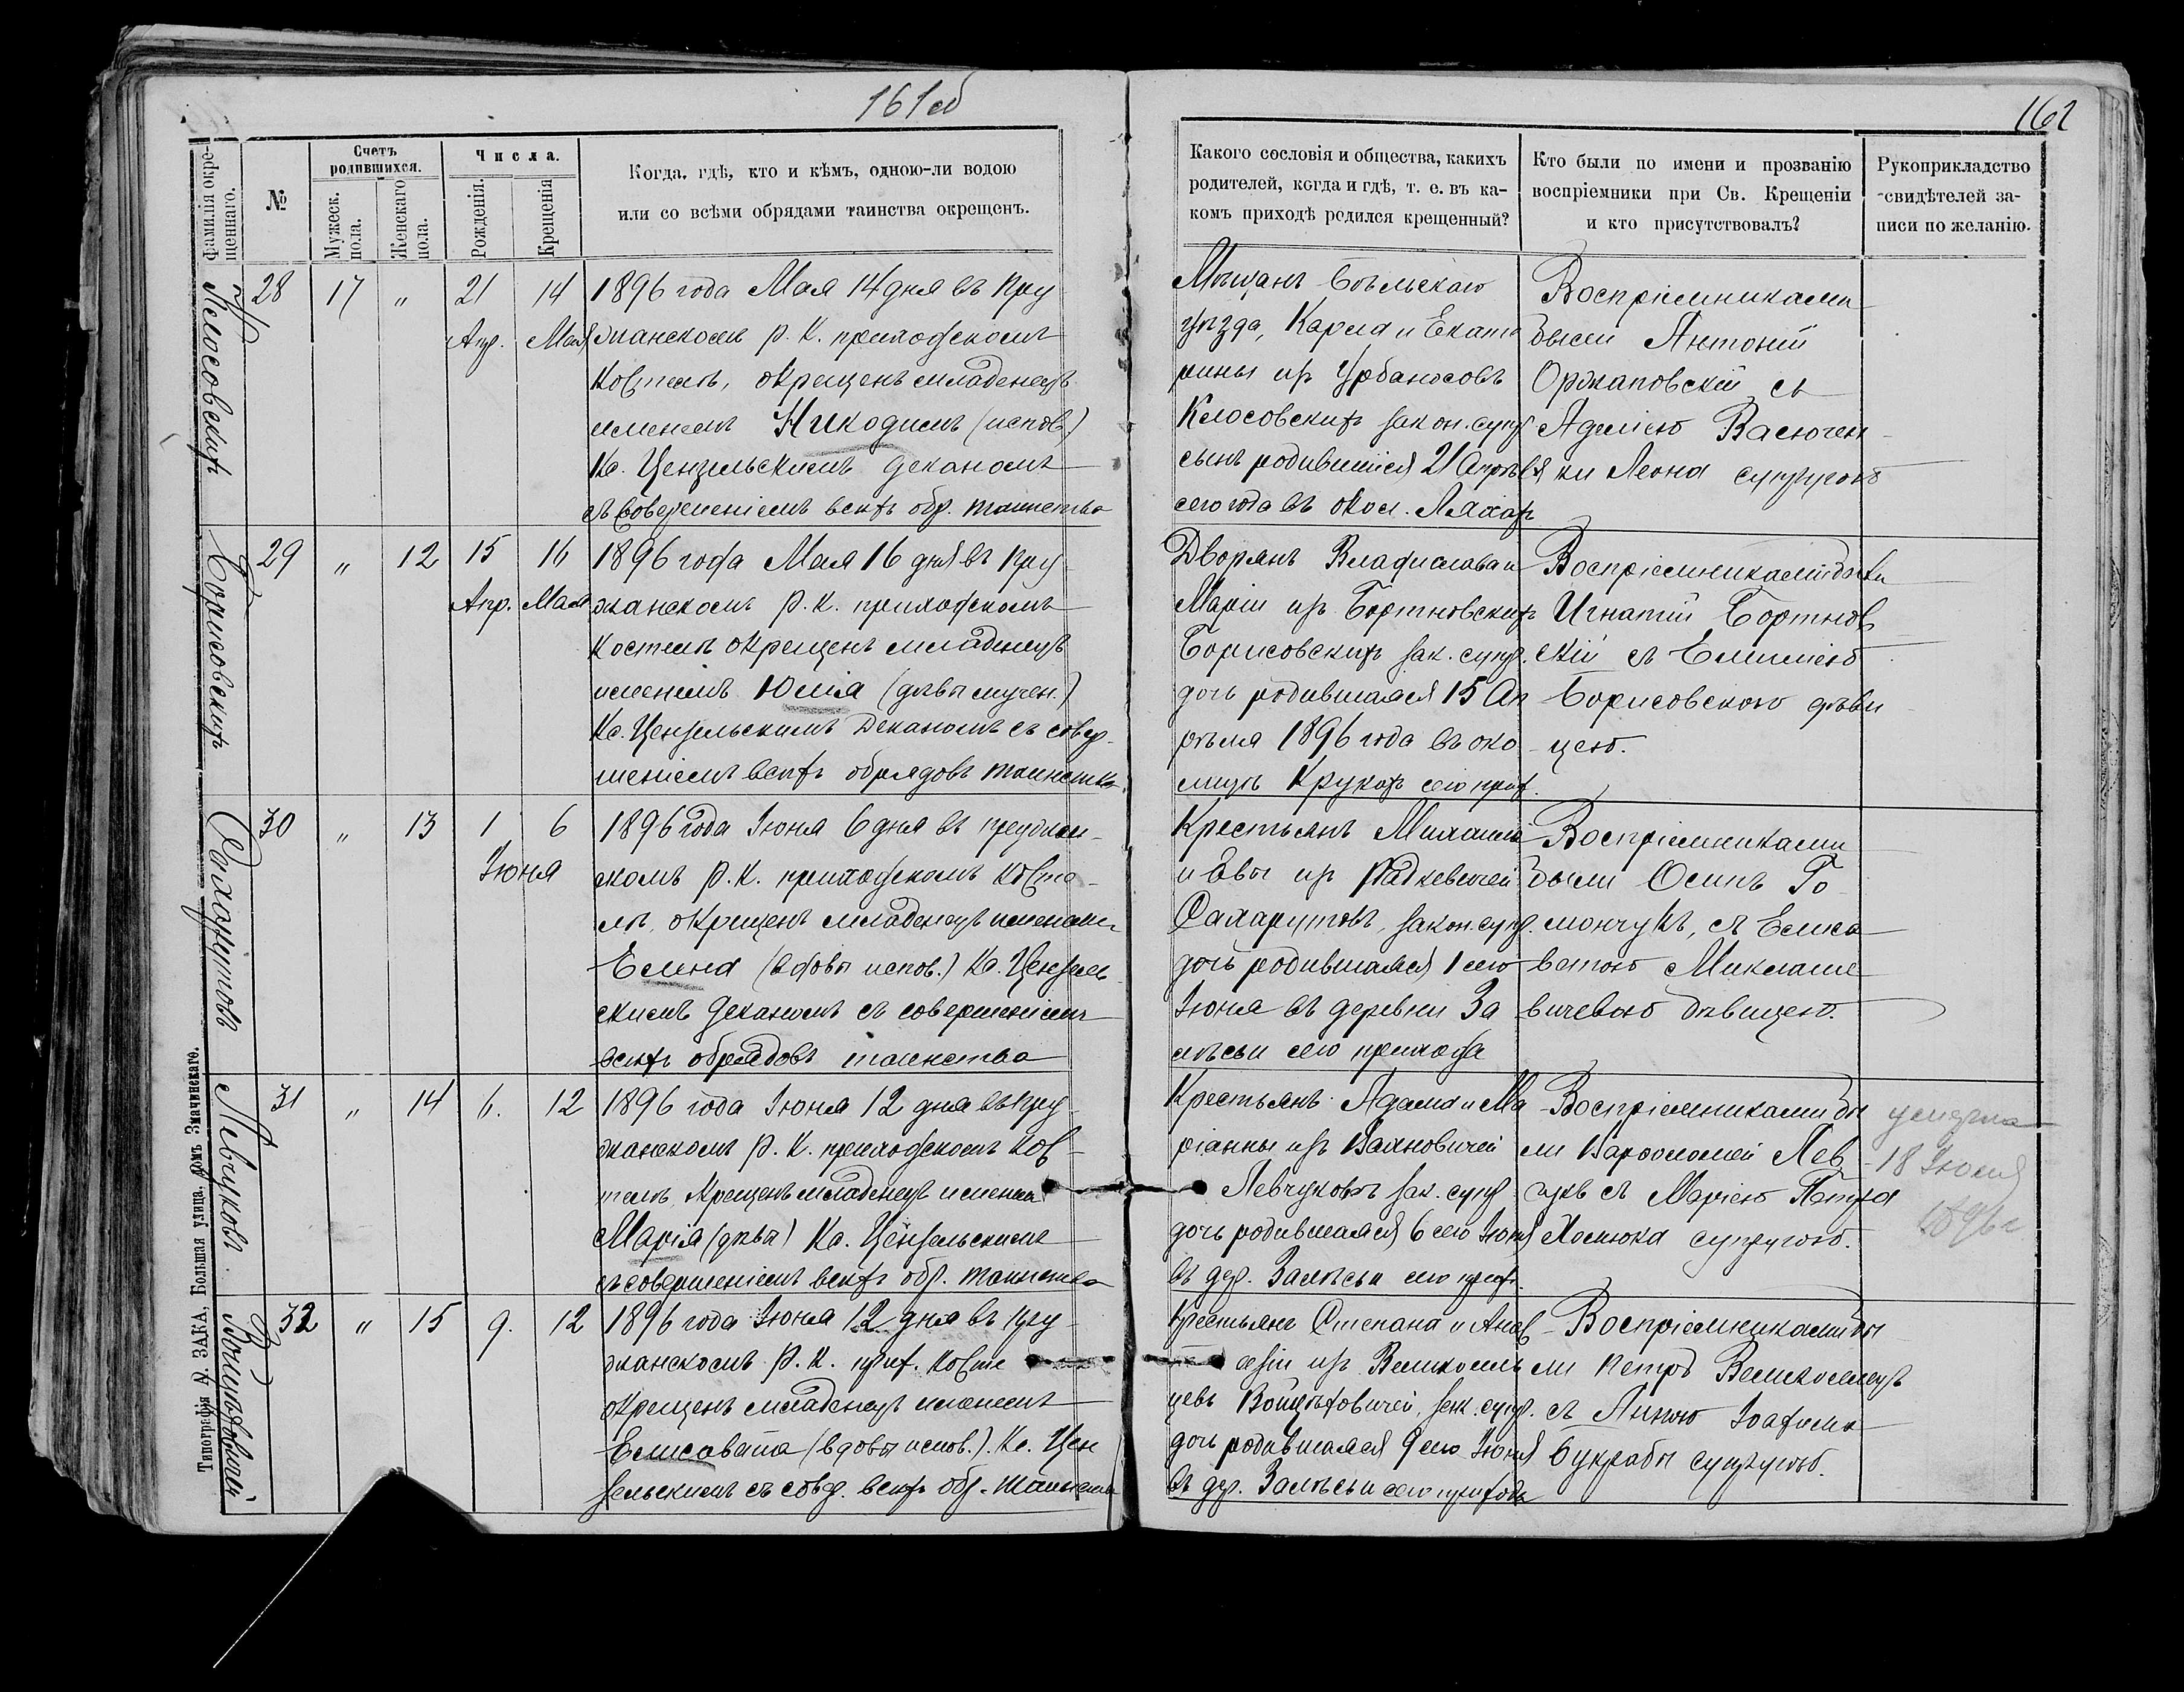 161об
162
Фамилія окрещеннаго.
№
Счетъ родившихся.
Мужеск. пола.
Женскаго пола.
Числа.
Рожденія.
Крещенія
Когда, гдѣ, кто и кѣмъ, одною-ли водою
или со всѣми обрядами таинства окрещенъ.
Какого сословія и общества, какихъ
родителей, когда и гдѣ, т. е. въ ка-
комъ приходѣ родился крещенный?
Кто были по имени и прозванію
воспріемники при Св. Крещеніи
и кто присутствовалъ?
Рукоприкладство
-свидѣтелей за-
писи по желанію.
Клосовскихъ
28 17 „ 21 14
Апр. Мая
1896 года Мая 14 дня въ Пру
жанскомъ р. К. приходскомъ
Костелѣ, окрещенъ младенецъ
именемъ Никодимъ (испов.)
Кс. Цензельскимъ деканомъ
съ совершеніемъ всѣхъ обр. таинства
Мѣщанъ Бѣльскаго
уѣзда, Карла и Екате
рины изъ Урбаносовъ
Клосовскихъ закон. супр
сынъ родившійся 21 Апрѣля
сего года въ окол. Ляхахъ
Воспріемниками
были Антоній
Оржаповскій съ
Аделіею Васючен-
ки Леона супругою
Борисовскихъ
29 „ 12 15 16
Апр. Мая
1896 года Мая 16 дня въ Пру
жанскомъ р. К. приходскомъ
Костелѣ окрещенъ младенецъ
именемъ Юлія (дѣвы мучен.)
Кс. Цензельскимъ Деканомъ съ совер-
шеніемъ всѣхъ обрядовъ таинства
Дворянъ Владислава и
Маріи изъ Бортновскихъ
Борисовскихъ зак. супр.
дочь родившаяся 15 Ап
рѣля 1896 года въ око-
лицѣ Крукахъ сего прих.
Воспріемниками были
Игнатій Бортнов
скій съ Емиліею
Борисовскою дѣви
цею.
Сахарутовъ
30 „ 13 1 6
Іюня
1896 года Іюня 6 дня въ пружан-
скомъ р. К. приходскомъ косте-
лѣ, окрещенъ младенецъ именемъ
Елена (вдовы испов.) Кс. Цензель
скимъ деканомъ съ совершеніемъ
всѣхъ обрядовъ таинства
Крестьянъ Михаила
и Евы изъ Радкевичей
Сахарутовъ, закон. супр.
дочь родившаяся 1 сего
Іюня въ деревни За
лѣсьи сего прихода
Воспріемниками
были Осипъ Го
мончукъ, съ Елиса
ветою Миклаше
вичевою дѣвицею.
Левчуковъ
31 „ 14 6. 12
1896 года Іюня 12 дня въ Пру-
жанскомъ р. К. приходскомъ Кос-
телѣ, крещенъ младенецъ именемъ
Марія (дѣвы) Кс. Цензельскимъ
съ совершеніемъ всѣхъ обр. таинства
Крестьянъ Адама и Ма
ріанны изъ Вахновичей
Левчуковъ зак. супр
дочь родившаяся 6 сего Іюня
въ дер. Залѣсьи сего прих.
Воспріемниками бы
ли Варфоломей Лев
чукъ съ Маріею Петра
Хомюка супругою.
умерла
18 Іюля
1896 г
Войцѣховичей
32 „ 15 9. 12
1896 года Іюня 12 дня въ Пру-
жанскомъ р. К. прих. косте
окрещенъ младенецъ именемъ
Елисавета (вдовы испов.). Кс. Цен
зельскимъ съ совер. всѣхъ обр. таинства
Крестьянъ Степана и Анас
изъ Великосель
цевъ Войцѣховичей, зак. супр.
дочь родившаяся 9 сего Іюня
въ дер. Залѣсьи сего прихода
Воспріемниками бы
ли Петръ Великоселецъ
съ Анною Іоахима
Букрабы супругою.
Типографія А. ЗАКА, Большая улица, домъ Значинскаго.